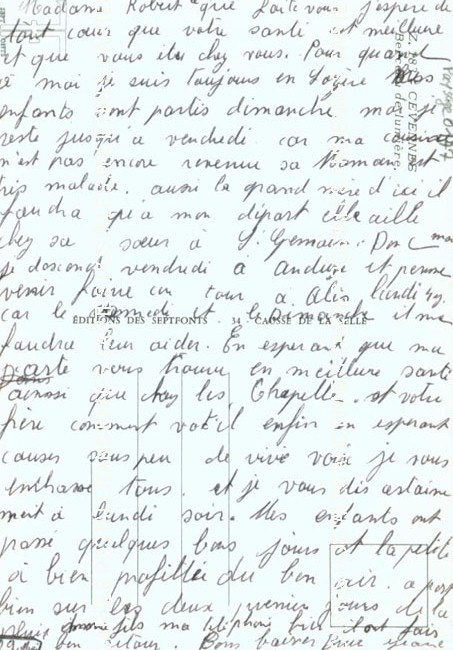 Madame Robert que faite vous j'espere de
tout cœur que votre santé est meilleure
et que vous êtes chez vous. Pour quand
à moi je suis toujours en Lozère Mes
enfants sont partis dimanche moi je
reste jusqu'a vendredi car ma cousine
n'est pas encore revenue sa Maman est
très malade. aussi la grand mère d'ici il
faudra qu'a mon départ elle aille
chez sa sœur à St Germain. Donc moi
je descend vendredi à Anduze et pense
venir faire un tour à Alès lundi
car le Samedi et le Dimanche il me
faudra leur aider. En esperant que ma
carte vous trouve en meilleure santé
ainssi que chez les Chapelle et votre
frère comment vat'il enfin en esperant
causer sous peu de vive voix je vous
embrasse tous. et je vous dis certaine
ment à lundi soir. Mes enfants ont
passé quelques bons jours et la petite
à bien profitée du bon air. a part
bien sur les deux premiers jours de la
pluie fils ma téléphoné bien
bon retour. Bons baisers
ÉDITIONS DES SEPTFONTS - 34 - CAUSSE DE LA SELLE
CÉVENNES